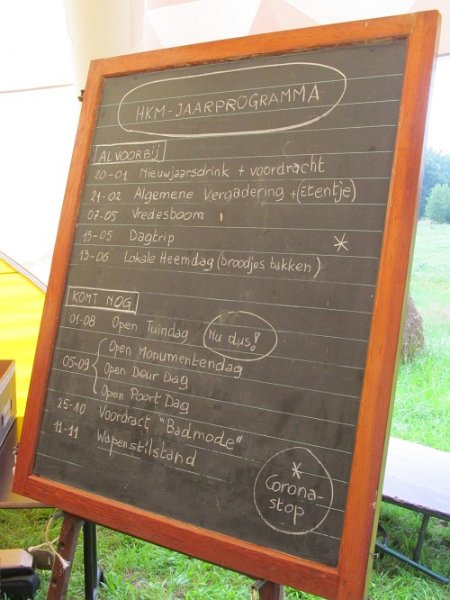 HKM-JAARPROGRAMMA
AL VOORBIJ
20-01 Nieuwjaarsdrink + voordracht
21-02 Algemene Vergadering + (Etentje)
07-05 Vredesboom
15-05 Dagtrip *
13-06 Lokale Heemdag (broodjes bakken)
KOMT NOG
01-08 Open Tuindag Nu dus!
Open Monumentendag
05-09 { Open Deur Dag
Open Poort Dag
25-10 Voordract "Badmode"
11-11 Wapenstilstand
*
Corona-
stop